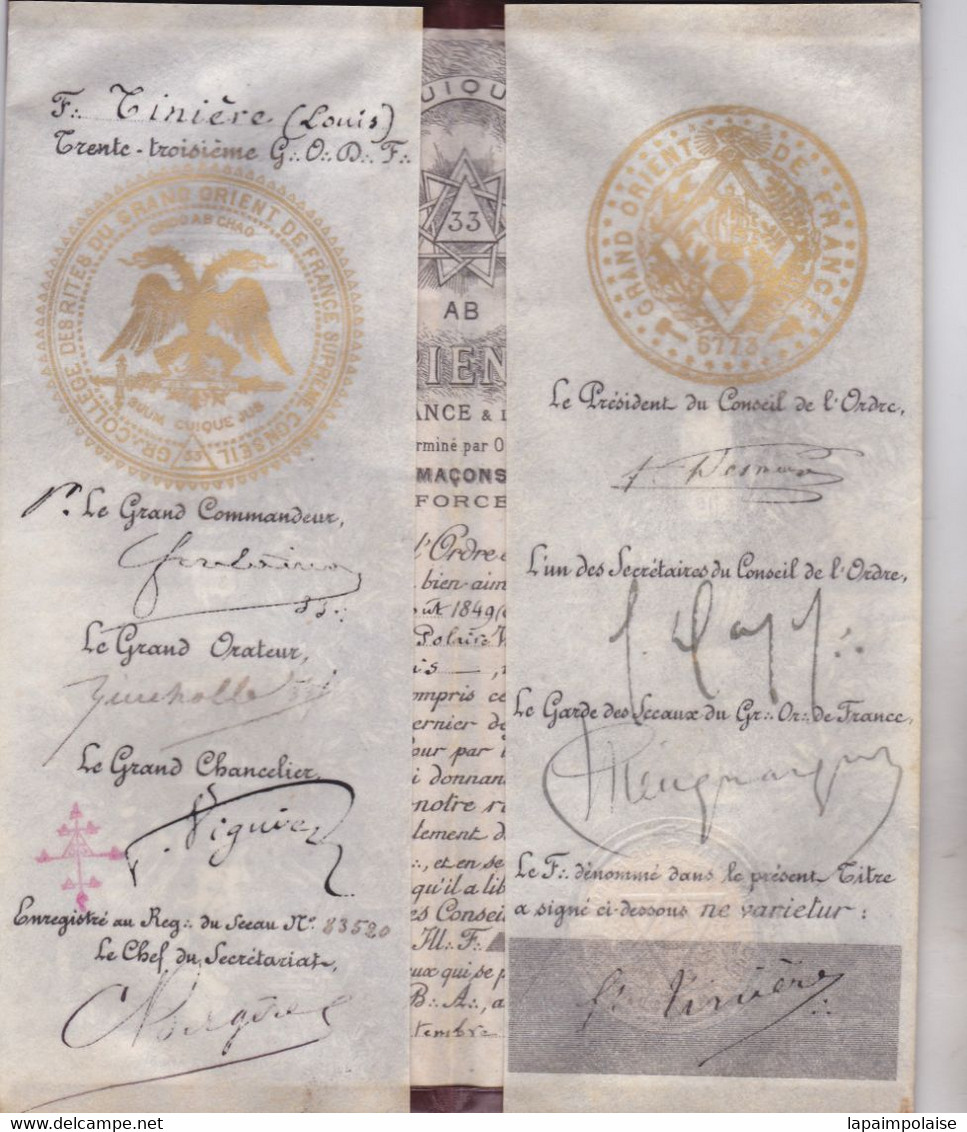 F∴ Tinière (Louis)
Trente-troisième G∴O∴D∴F∴
GR∴ COLLÈGE DES RITES DU GRAND ORIENT DE FRANCE SUPRÊME CONSEIL
ORDO AB CHAO
SUUM CUIQUE JUS
33
Le Grand Commandeur,
33∴
Le Grand Orateur,
Le Grand Chancelier,
Viguier
Enregistré au Reg∴ du Sceau N° 23520
Le Chef du Secrétariat,
UIQU
33
AB
RIEN
ANCE &
rminé par O
MAÇONS
FORCE
l'Ordre
bien aim
ût 1849
Polaire
is —,
ompris ce
ernier de
our par
i donnan
notre r
lement d
∴, et en se
qu'il a lib
es Conseil
Ill∴ F∴
eux qui se p
B∴ A∴, a
tembre
GRAND ORIENT DE FRANCE
5773
Le Président du Conseil de l'Ordre,
L'un des Secrétaires du Conseil de l'Ordre,
Le Garde des Sceaux du Gr∴ Or∴ de France,
Le F∴ dénommé dans le présent Titre
a signé ci-dessous ne varietur :
Ls Tinière
delcampe.net
lapaimpolaise